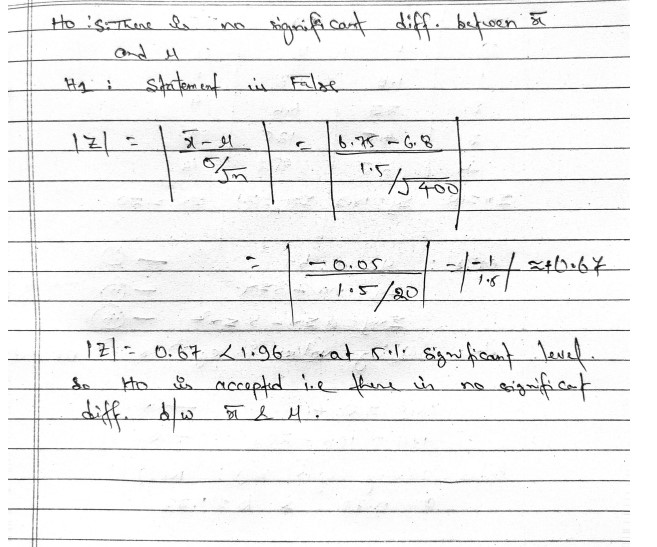 Ho : S: There is no significant diff. between x̄
and μ
H1 : Statement is False
|Z| = | x̄ - μ / σ/√n | = | 6.75 - 6.8 / 1.5/√400 |
= | -0.05 / 1.5/20 | = | -1 / 1.5 | ≈ +0.67
|Z| = 0.67 < 1.96 at 5.1. significant level.
So Ho is accepted i.e there is no significat
diff. b/w x̄ & μ.